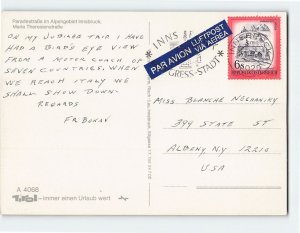 Paradestraße im Alpengebiet Innsbruck,
Maria Theresienstraße
ON MY JUBILEE TAIR I HAVE
HAD A BIRD'S EYE VIEW
FROM A MOTOR COACH OF
SEVEN COUNTRIES. WHEN
WE REACH ITALY WE
SHALL SHOW DOWN.
REGARDS
FR. BOKAN
A 4068
Tirol – immer einen Urlaub wert
INNS
GRESS-STADT
PAR AVION LUFTPOST
VIA AEREA
REPUBLIK ÖSTERREICH
MISS BLANCHE NECHANICKY
394 STATE ST
ALBANY N.Y. 12210
USA